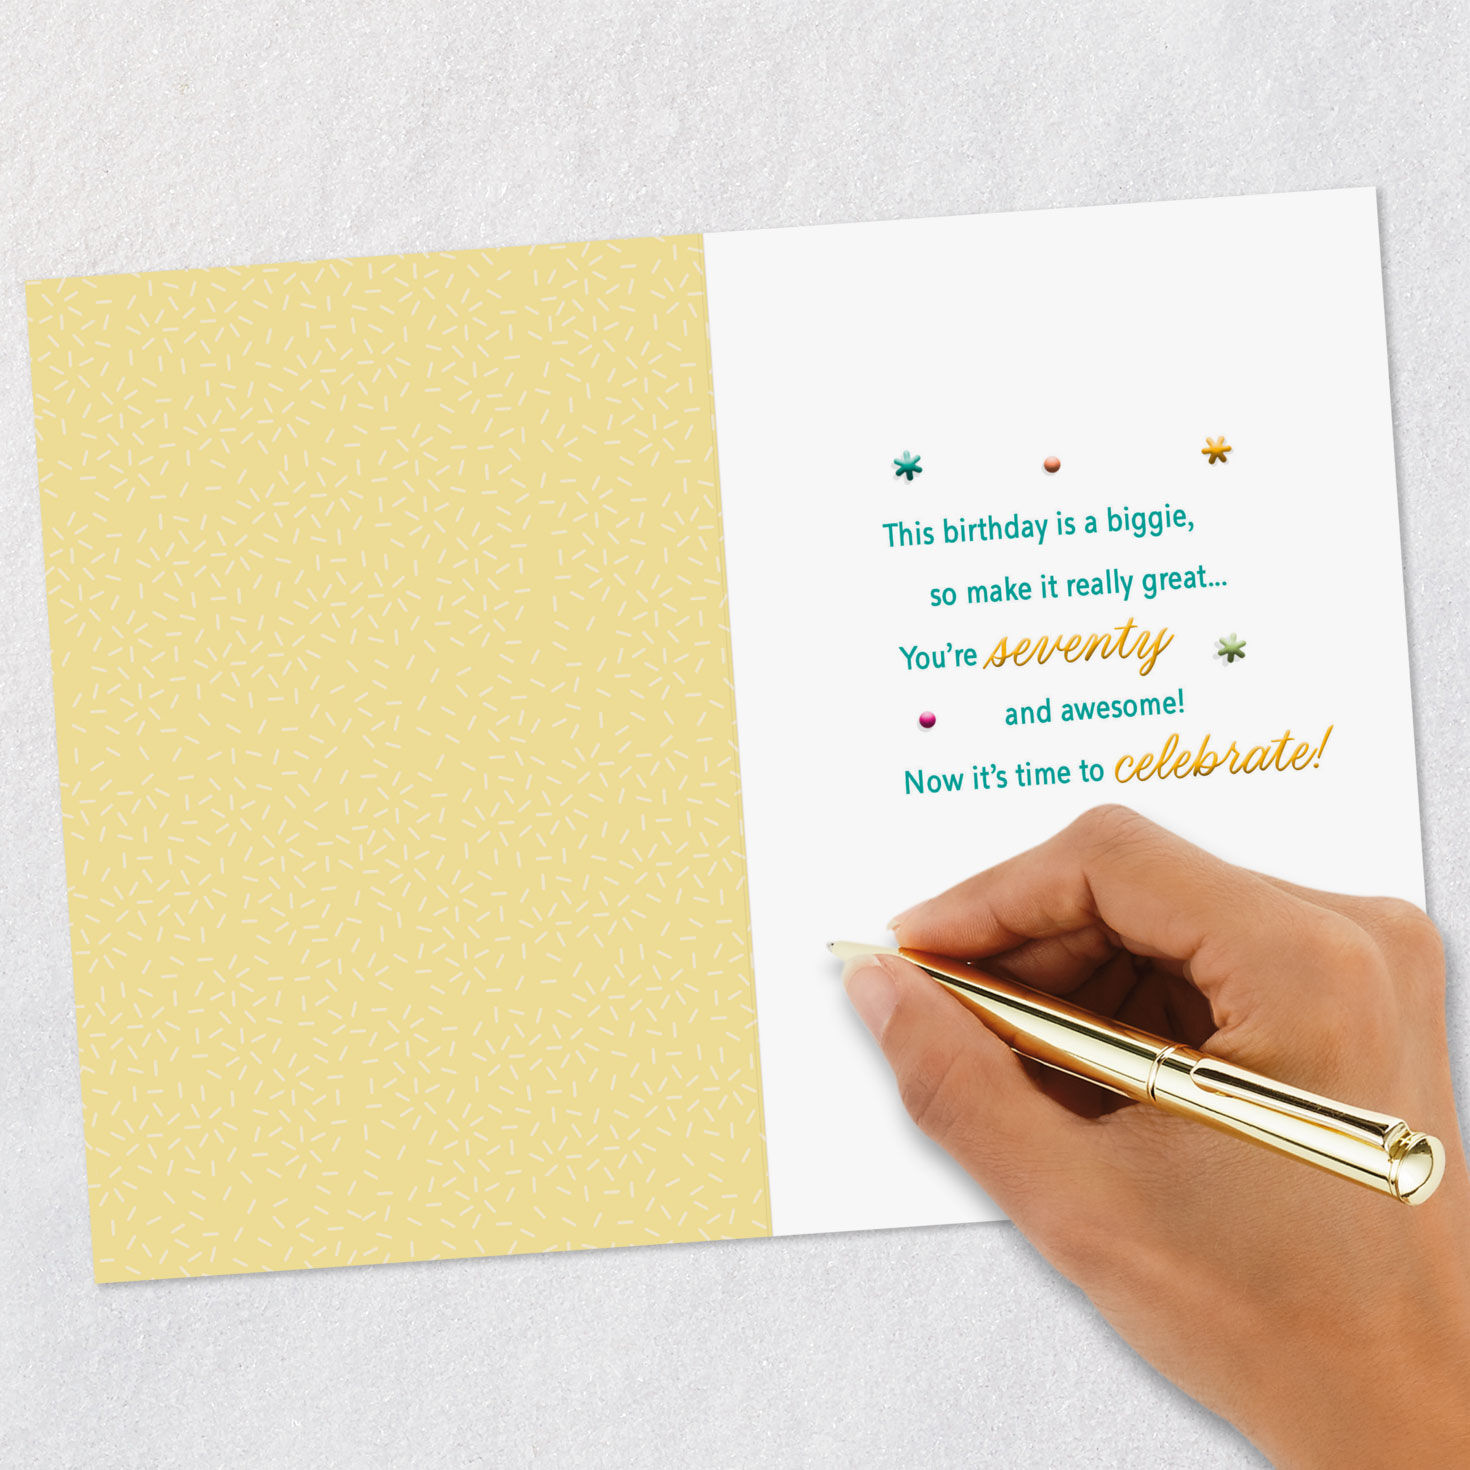 This birthday is a biggie,
so make it really great...
You're seventy
and awesome!
Now it's time to celebrate!